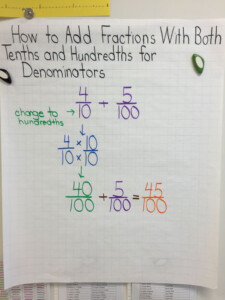 How to Add Fractions With Both
Tenths and Hundredths for
Denominators
change to
hundredths → 4/10 + 5/100
4/10 × 10/10
40/100 + 5/100 = 45/100